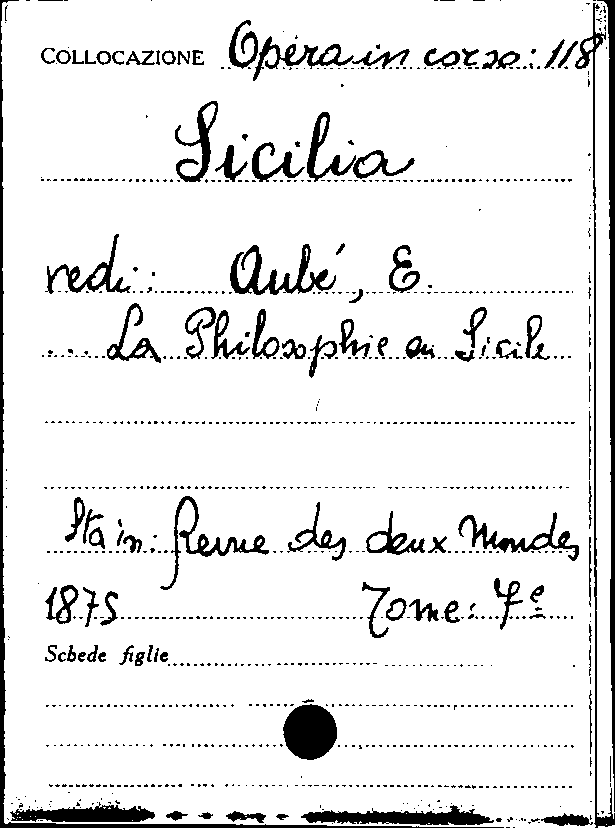 COLLOCAZIONE Opera in corso: 118
Sicilia
vedi: Aubé, E.
... La Philosophie en Sicile
Sta in: Revue des deux Mondes
1875 Tome: 7e
Schede figlie